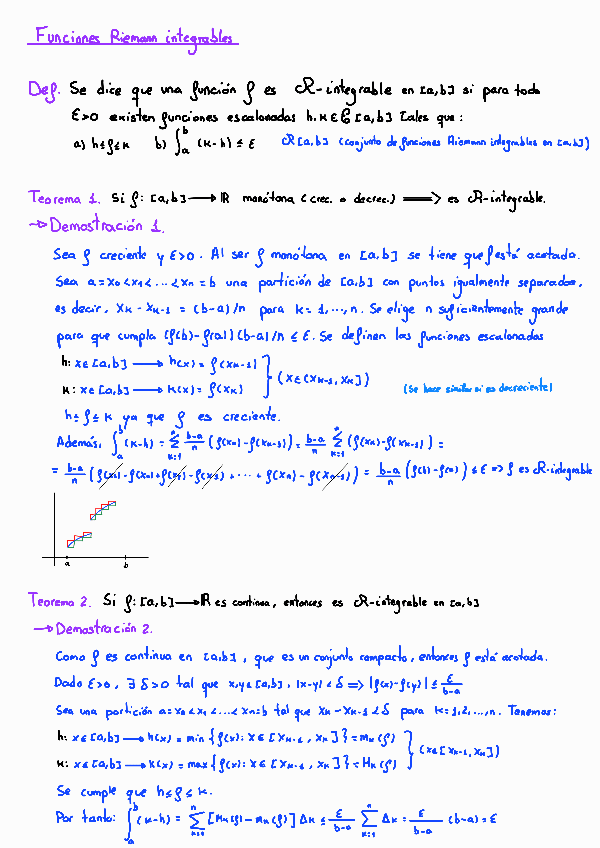 Funciones Riemann integrables
Def. Se dice que una función f es R-integrable en [a,b] si para todo
ε>0 existen funciones escalonadas h,k∈ℰ[a,b] tales que:
a) h≤f≤k b) ∫_a^b (k-h) ≤ ε R[a,b] (conjunto de funciones Riemann integrables en [a,b])
Teorema 1. Si f: [a,b] → ℝ monótona (crec. o decrec.) ⟹ es R-integrable.
→ Demostración 1.
Sea f creciente y ε>0. Al ser f monótona en [a,b] se tiene que f está acotada.
Sea a=x₀<x₁<...<xₙ=b una partición de [a,b] con puntos igualmente separados,
es decir, xₖ-xₖ₋₁ = (b-a)/n para k=1,...,n. Se elige n suficientemente grande
para que cumpla (f(b)-f(a))(b-a)/n ≤ ε. Se definen las funciones escalonadas
h: x∈[a,b] → h(x) = f(xₖ₋₁)
k: x∈[a,b] → k(x) = f(xₖ) } (x∈(xₖ₋₁, xₖ]) (Se hace similar si es decreciente)
h≤f≤k ya que f es creciente.
Además, ∫_a^b (k-h) = Σ_{k=1}^n (b-a)/n (f(xₖ)-f(xₖ₋₁)) = (b-a)/n Σ_{k=1}^n (f(xₖ)-f(xₖ₋₁)) =
= (b-a)/n (f(x₁)-f(x₀)+f(x₂)-f(x₁)+...+f(xₙ)-f(xₙ₋₁)) = (b-a)/n (f(b)-f(a)) ≤ ε ⟹ f es R-integrable
a b
Teorema 2. Si f: [a,b] → ℝ es continua, entonces es R-integrable en [a,b]
→ Demostración 2.
Como f es continua en [a,b], que es un conjunto compacto, entonces f está acotada.
Dado ε>0, ∃ δ>0 tal que x,y∈[a,b], |x-y|<δ ⟹ |f(x)-f(y)| ≤ ε/(b-a)
Sea una partición a=x₀<x₁<...<xₙ=b tal que xₖ-xₖ₋₁<δ para k=1,2,...,n. Tenemos:
h: x∈[a,b] → h(x) = min {f(x): x∈[xₖ₋₁, xₖ]} = mₖ(f)
k: x∈[a,b] → k(x) = max {f(x): x∈[xₖ₋₁, xₖ]} = Mₖ(f) } (x∈[xₖ₋₁, xₖ])
Se cumple que h≤f≤k.
Por tanto: ∫_a^b (k-h) = Σ_{k=1}^n [Mₖ(f)-mₖ(f)] Δₖ ≤ ε/(b-a) Σ_{k=1}^n Δₖ = ε/(b-a) (b-a) = ε